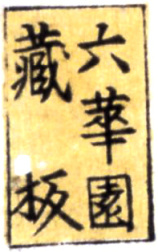 六華園
藏板